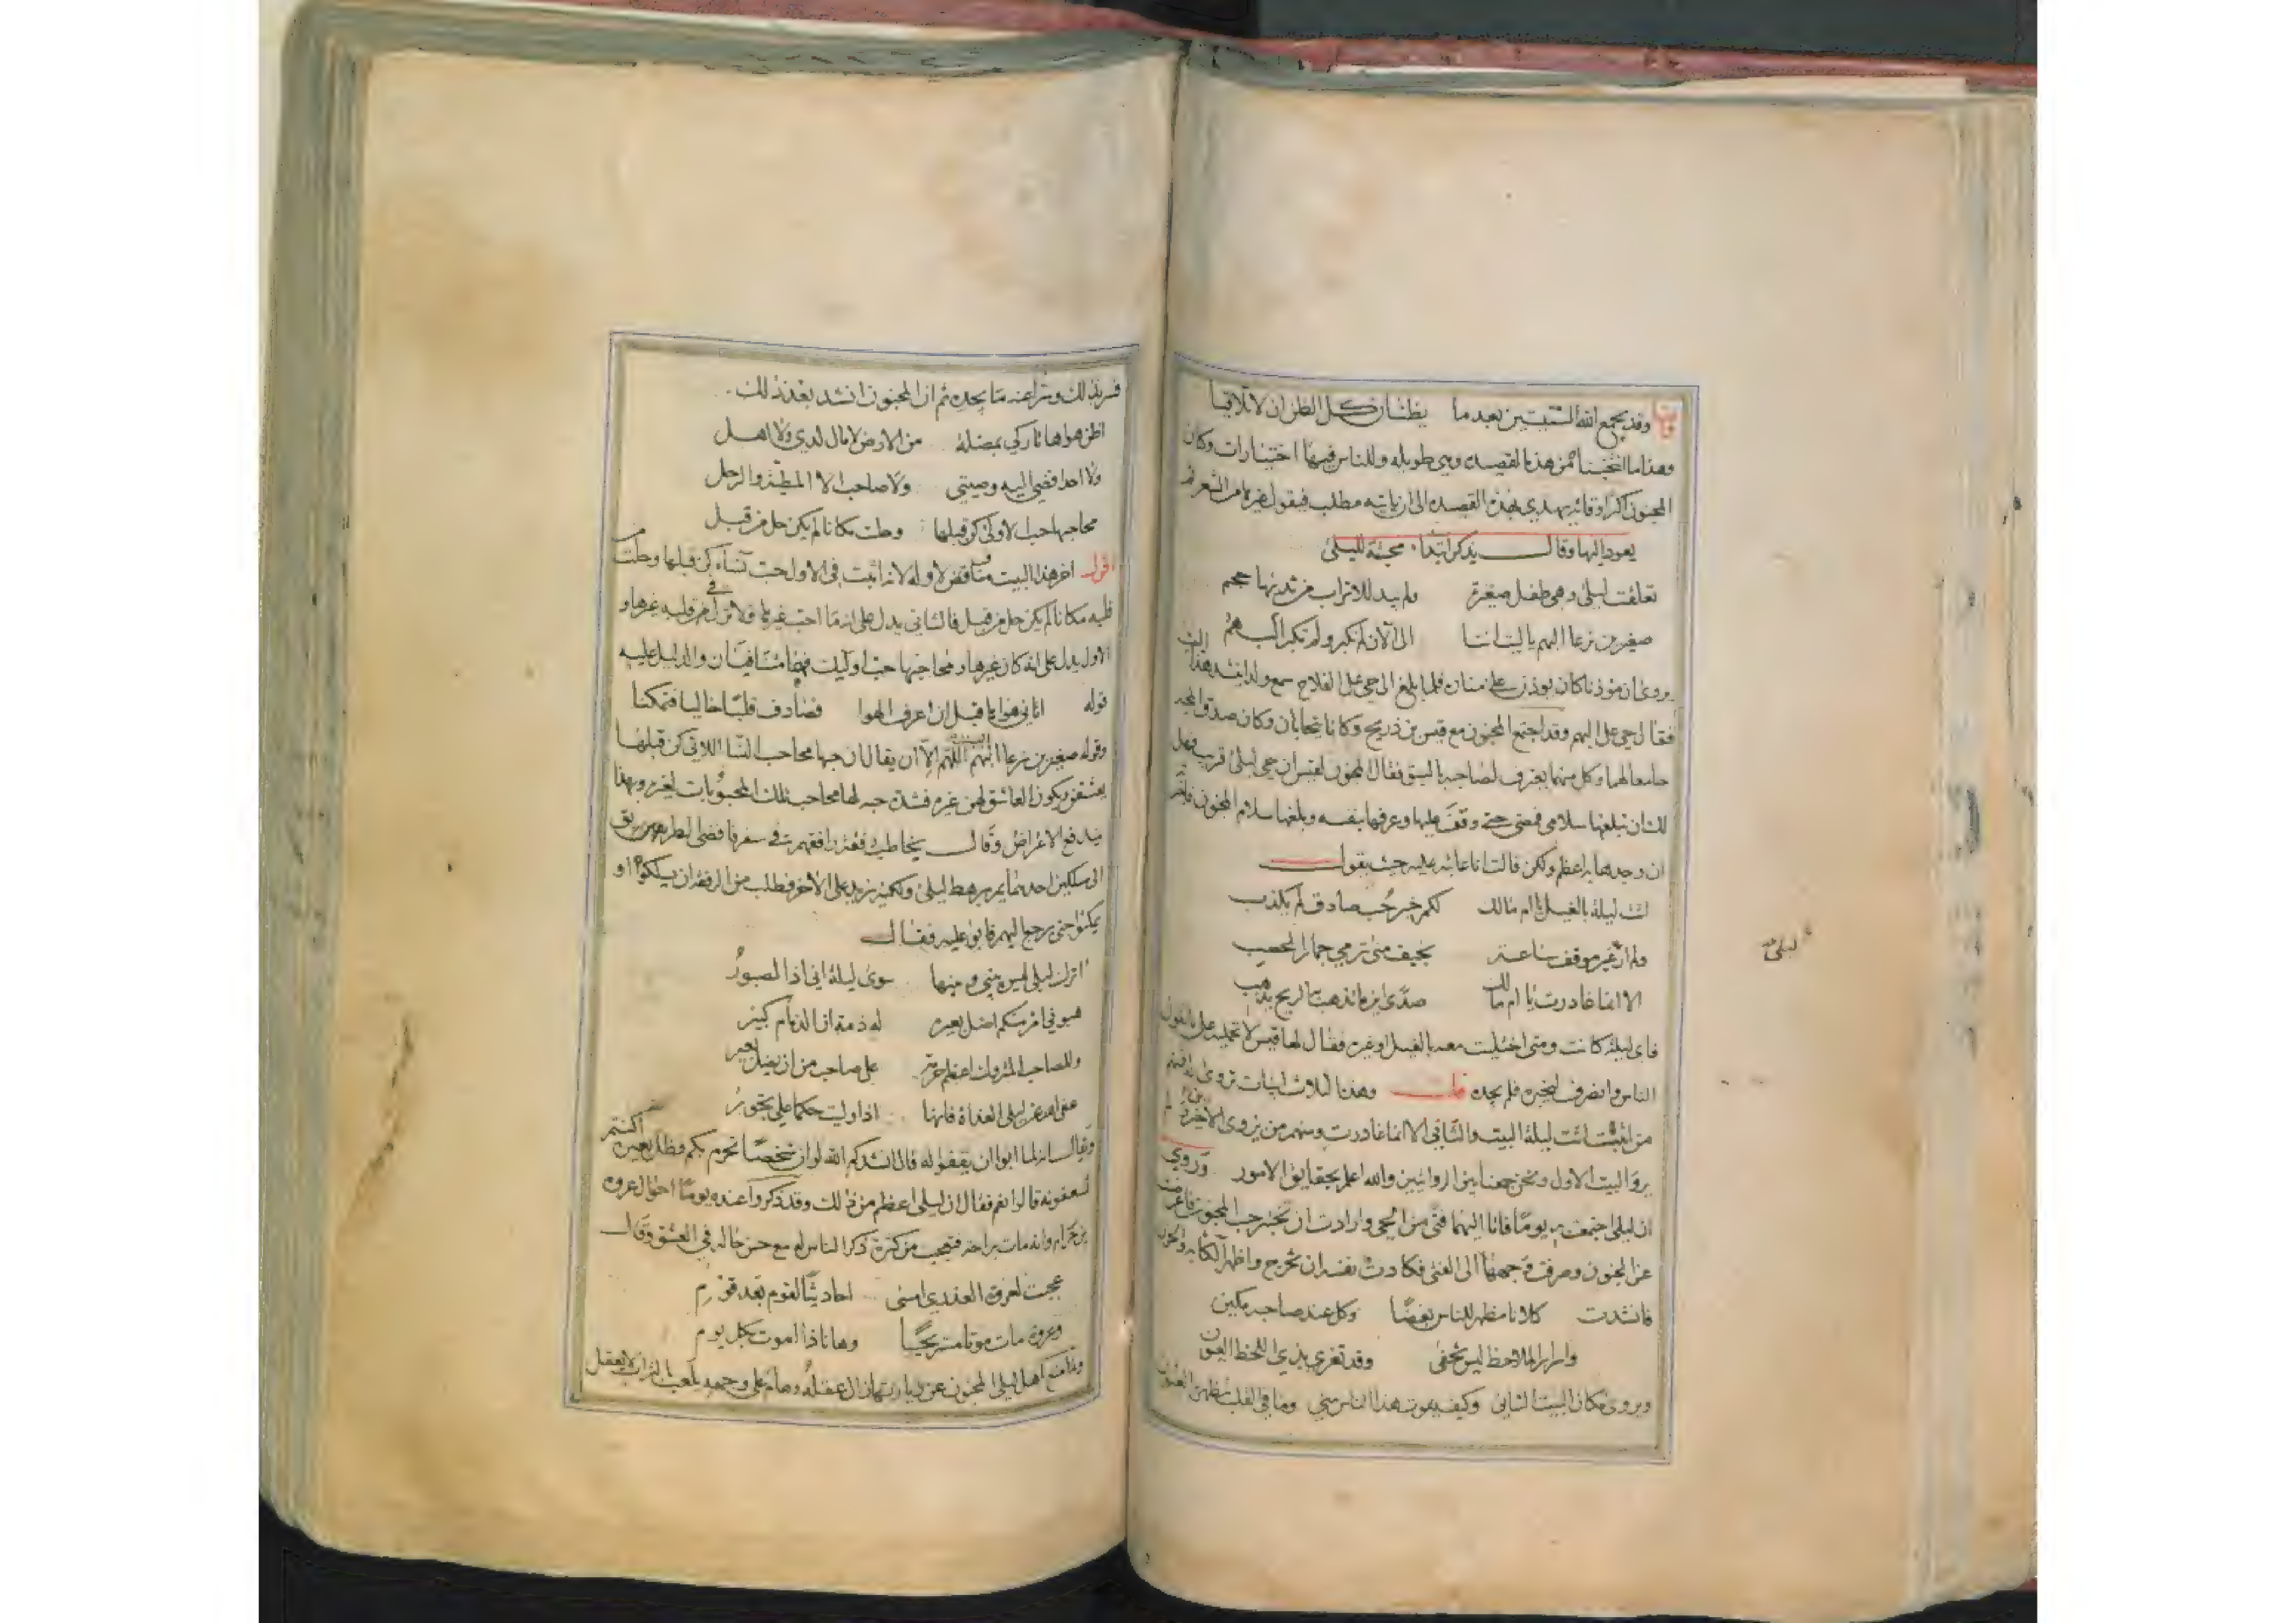 وقد يجمع الله الشتيتين بعدما يظنان كل الظن ان لا تلاقيا
وهذا ما انتخبنا من هذه القصيده وهي طويله وللناس فيها اختيارات وكان
المجنون اكثر اوقاته يهدي بهذه القصيده الى ان ياتيه مطلب فيقول غيرها من الشعر ثم
يعود اليها وقال يذكر ابتدا محبته لليلى
تعلقت ليلى وهي طفل صغيرة ولم يبد للاتراب من ثديها حجم
صغيرين نرعا البهم يا ليت اننا الى الآن لم نكبر ولم تكبر البهم
يروى ان مؤذنا كان يوذن على منارة فلما بلغ الى حي على الفلاح سمع ولدا ينشد هذا البيت
فقال حي على البهم وقد اجتمع المجنون مع قيس بن ذريح وكانا يتحابان وكان صدق المحبة
جامعا لهما وكل منهما يعترف لصاحبه بالسبق فقال المجنون لقيس ان حي ليلى قريب فهل
لك ان تبلغها سلامي فمضى حتى وقف عليها وعرفها بنفسه وبلغها سلام المجنون فاقر
ان وجدها به اعظم ولكن قالت انا عاتبة عليه حيث يقول
اتت ليلة بالغيل يا ام مالك لكم خبر حب صادق لم يكذب
ولم ار ليلى غير موقف ساعة بخيف منى ترمي جمار المحصب
الا انما غادرت يا ام مالك صدى اين ما تذهب به الريح يذهب
فاي ليلة كانت ومتى اختليت معه بالغيل او غيره فقال لها قيس لا تحمليه على ما يقول
الناس وانصرف ليخبره فلم يجده قلت وهذه الثلاث ابيات تروى له فمنهم
من اثبت اتت ليلة البيت والثاني الا انما غادرت ومنهم من يروي الاخيرين ولم
يرو البيت الاول ونحن جمعنا بين الروايتين والله اعلم بحقايق الامور وروي
ان ليلى اجتمعت به يوما فاتا اليهما فتى من الحي وارادت ان تختبر حب المجنون فاعرضت
عن المجنون وصرفت وجهها الى الفتى فكادت نفسه ان تخرج واظهر الكآبة والحزن
فانشدت كلانا مظهر للناس بغضا وكل عند صاحبه مكين
واسرار الملاحظ ليس تخفى وقد تغري بذي اللحظ العيون
ويروى مكان البيت الثاني وكيف يفوت هذا الناس شي وما في القلب تظهره العيون
ليلى
فسر بذلك وسرا عنه ما يجده ثم ان المجنون انشد بعد ذلك
اظن هواها تاركي بمضلة من الارض لا مال لدي ولا اهل
ولا احد افضي اليه وصيتي ولا صاحب الا المطية والرحل
محا حبها حب الاولى كن قبلها وحلت مكانا لم يكن حل من قبل
اقول اخر هذا البيت مناقض لاوله لانه اثبت في الاول حب نساء كن قبلها وحلت من
قلبه مكانا لم يكن حل من قبل فالثاني يدل على انه ما احب غيرها فلا نزل في قلبه غيرها و
الاول يدل على انه كان غيرها ومحا حبها حب اوليك فهما متنافيان والدليل عليه
قوله اتاني هواها قبل ان اعرف الهوا فصادف قلبا خاليا فتمكنا
وقوله صغيرين نرعا البهم البيت اللهم الا ان يقال ان حبها محا حب النسا اللاتي كن قبلها
يعشقن ويكون العاشق لهن غيره فشدة حبه لها محا حب تلك المحبوبات لغيره وبهذا
يندفع الاعتراض وقال يخاطب رفقة رافقهم في سفر فافضى الطريق
الى مسلكين احدهما يمر برهط ليلى ولكنه يزيد على الاخر فطلب من الرفقة ان يسلكوه او
يمكثوا حتى يرجع اليهم فابو عليه فقال
اترك ليلى ليس بيني وبينها سوى ليلة اني اذا لصبور
هبوني امرا منكم اضل بعيره له ذمة ان الذمام كبير
وللصاحب المتروك اعظم حرمة على صاحب من ان يضل بعير
عفى الله عن ليلى الغداة فانها اذا وليت حكما علي تجور
وقيل انه لما ابوا ان يقفوا له قال انشدكم الله لو ان شخصا تحرم بكم وضل بعيره اكنتم
تسعفونه قالوا نعم فقال ان ليلى اعظم من ذلك وقد ذكروا عنده يوما احوال عروة
بن حزام وانه مات براحة فتعجب من كثرة ذكر الناس له مع حسن حاله في العشق وقال
عجبت لعروة العذري امسى احاديثا لقوم بعد قوم
وعروة مات موتا مستريحا وها انا ذا اموت بكل يوم
ولما منع اهل ليلى المجنون عن زيارتها زال عقله وهام على وجهه يلعب بالتراب لا يعقل